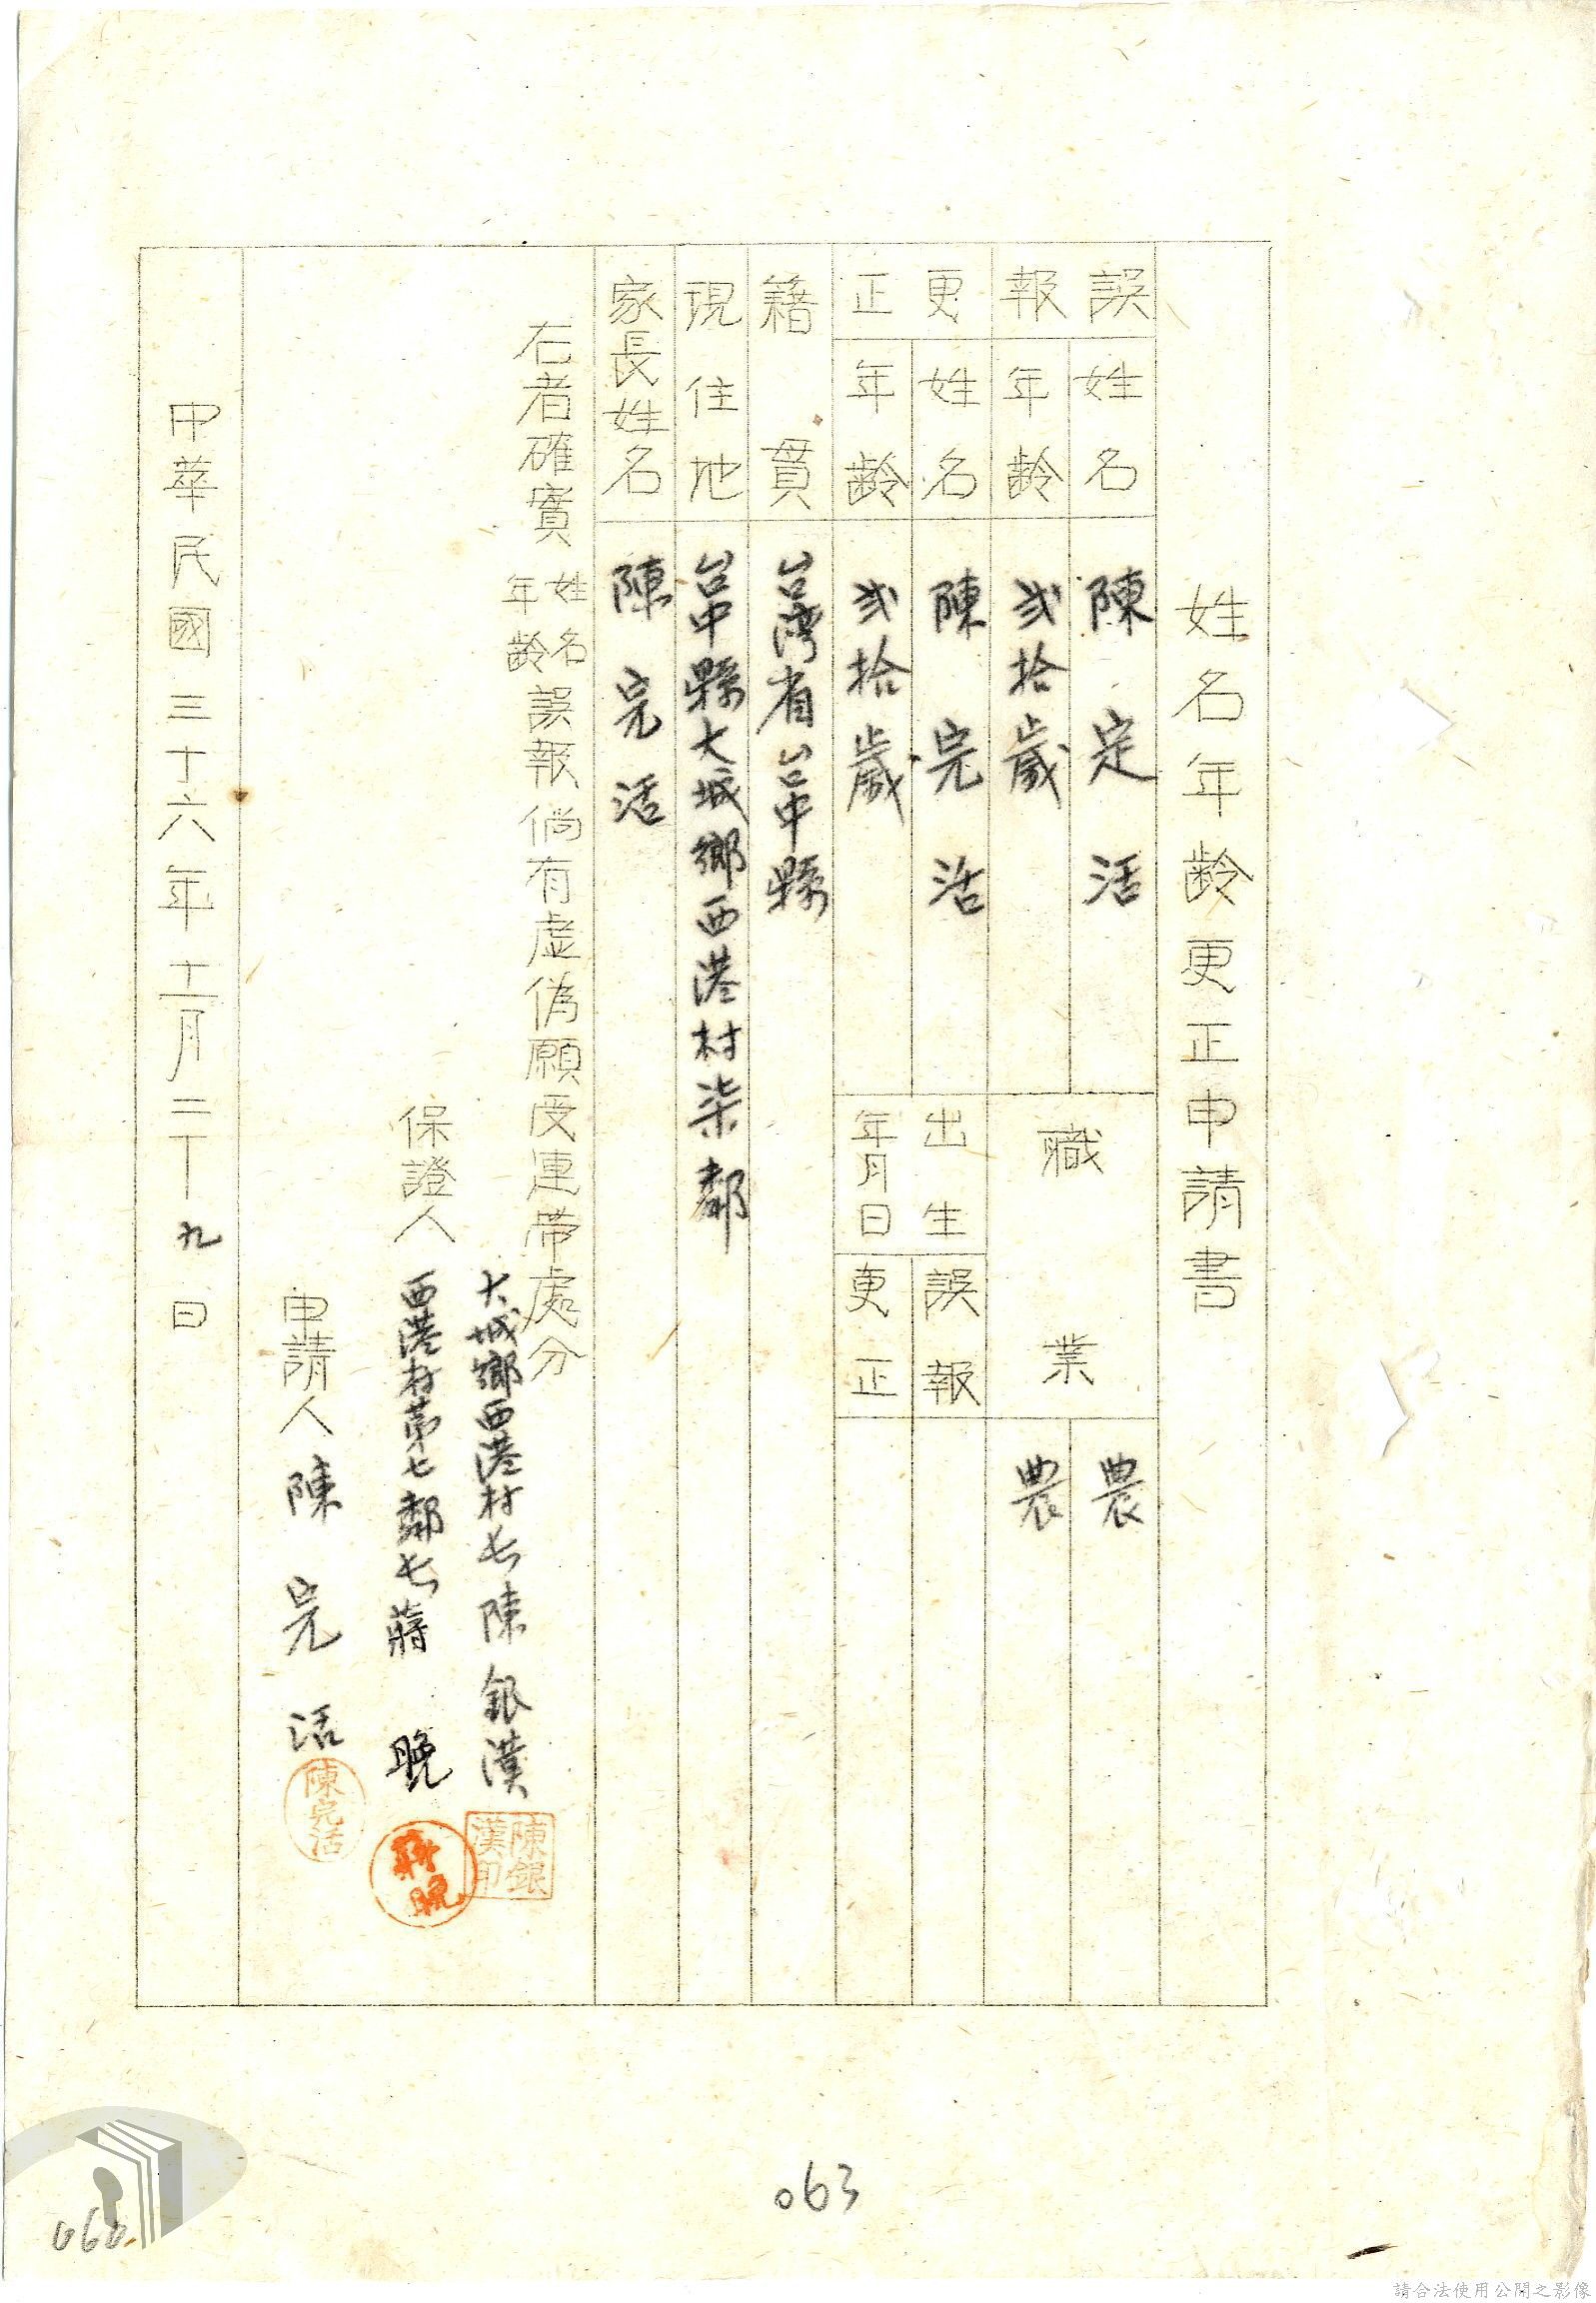 姓名年齡更正申請書
誤報
姓名
陳定活
年齡
弍拾歲
職業
農
農
更正
姓名
陳完活
年齡
弍拾歲
出生年月日
誤報
更正
籍貫
台灣省台中縣
現住地
台中縣大城鄉西港村柒鄰
家長姓名
陳完活
右者確實姓名年齡誤報倘有虛偽願受連帶處分
保證人
大城鄉西港村長陳銀漢
陳銀漢印
西港村第七鄰長蔣晚
蔣晚
申請人陳完活
陳完活
中華民國三十六年十二月二十九日
063
060
請合法使用公開之影像